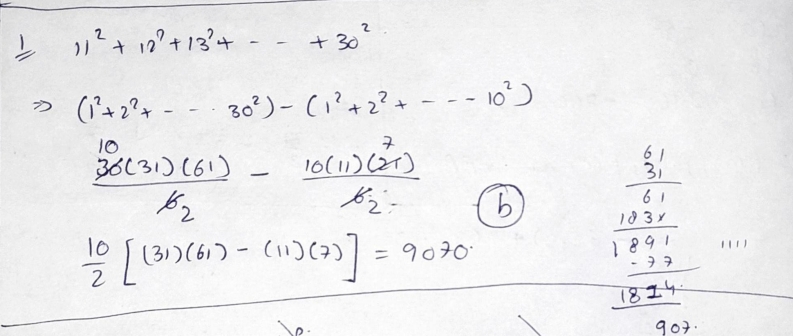 1 11² + 12² + 13² + - - + 30²
⇒ (1² + 2² + - - - 30²) - (1² + 2² + - - - 10²)
10 7
30(31)(61) / 6 2 - 10(11)(21) / 6 2
b
10/2 [(31)(61) - (11)(7)] = 9070.
61
31
61
183x
1891
-77
1814
907.